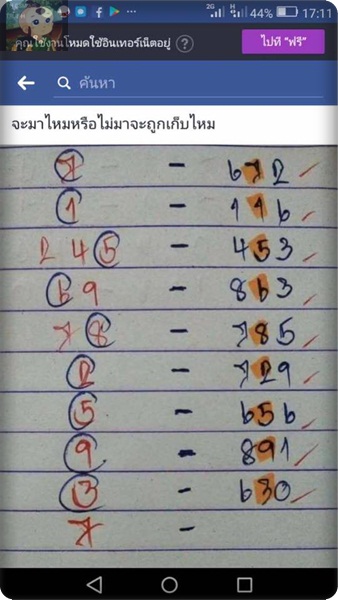 2G H 44% 17:11
คุณใช้งานโหมดใช้อินเทอร์เน็ตอยู่ ? ไปที่ "ฟรี"
ค้นหา
จะมาไหมหรือไม่มาจะถูกเก็บไหม
7 - 672
1 - 116
2 4 5 - 453
6 9 - 863
7 8 - 785
2 - 729
5 - 656
9 - 891
3 - 630
7 -